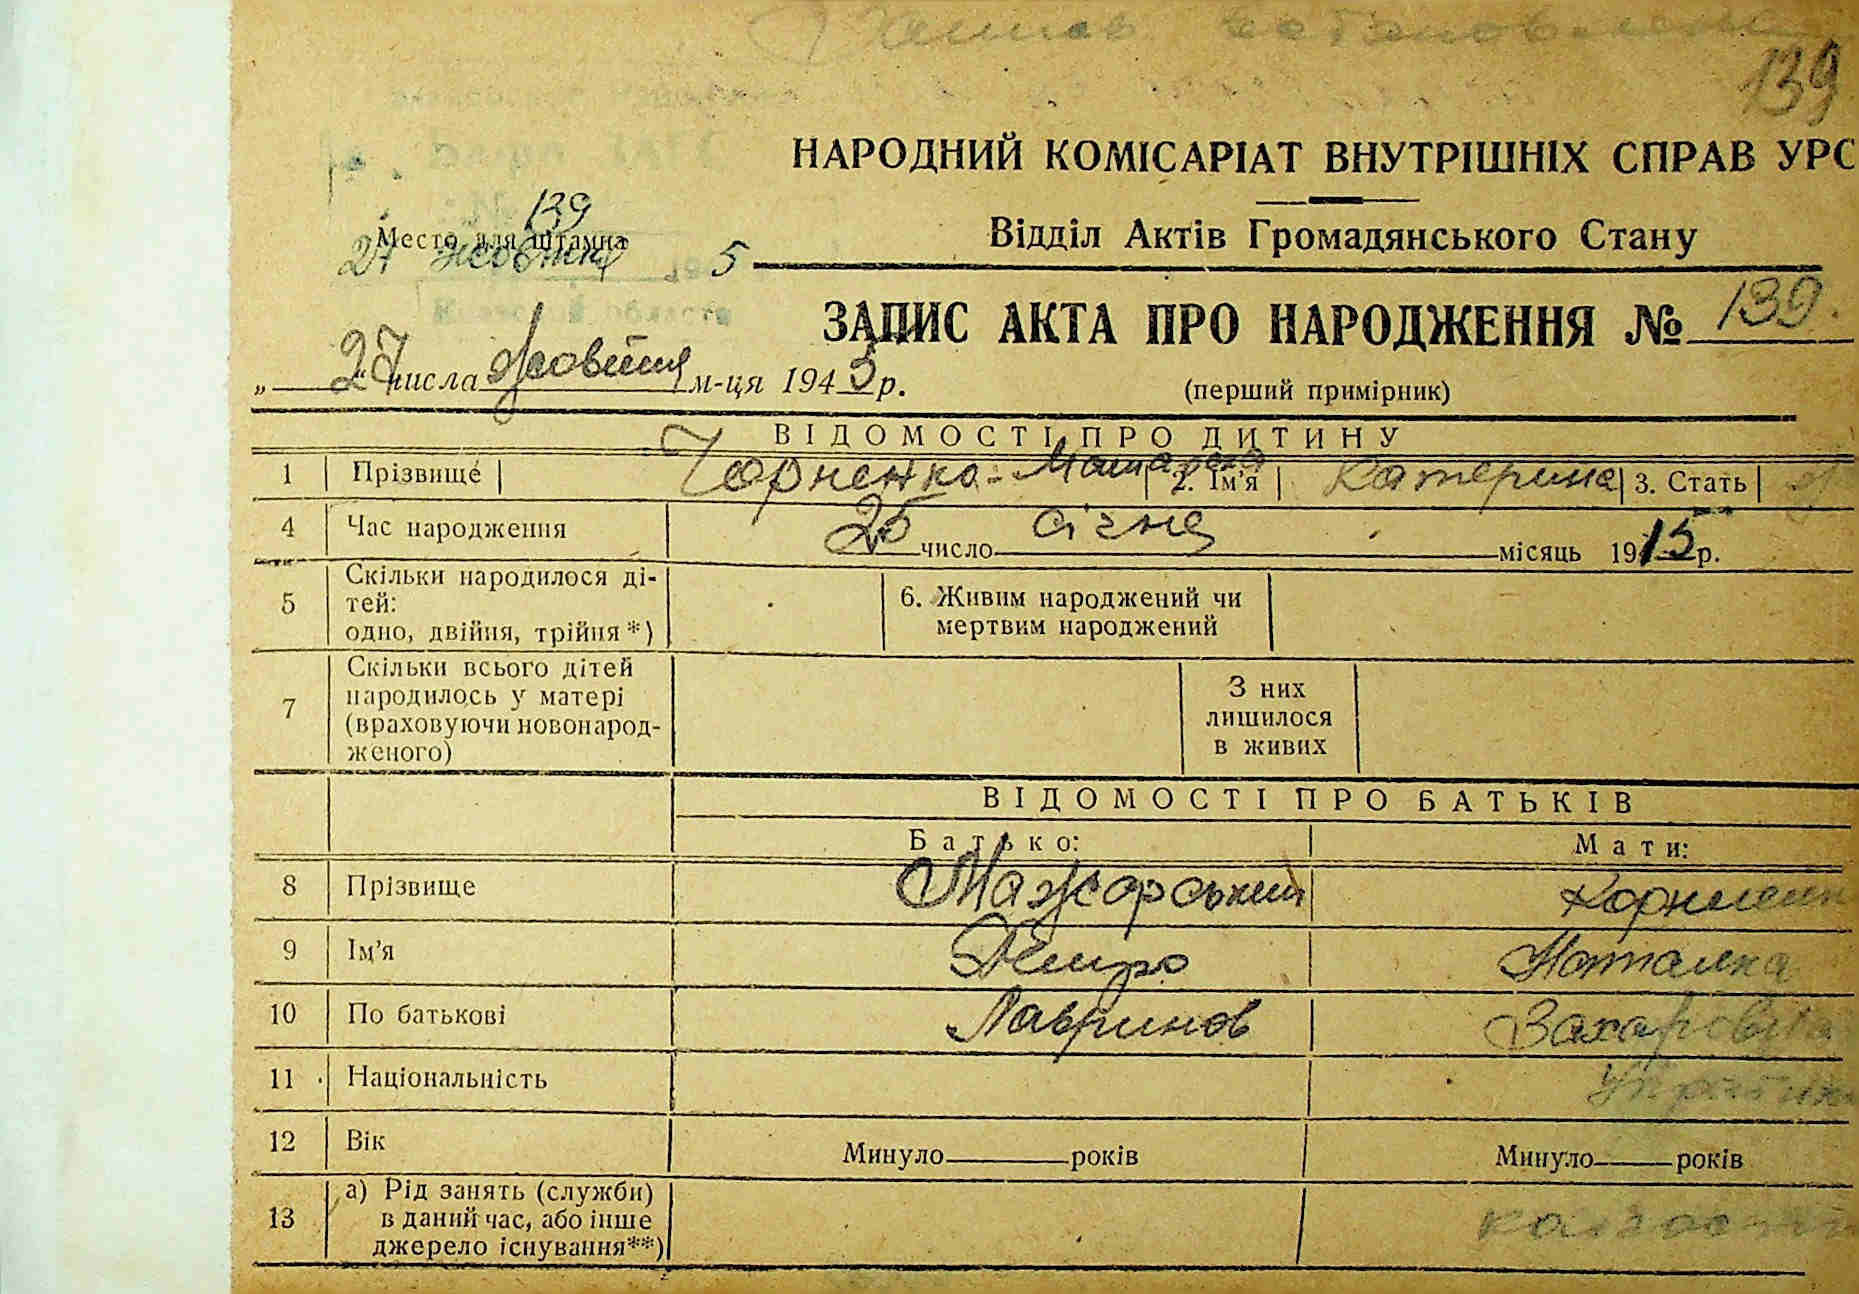 139
НАРОДНИЙ КОМІСАРІАТ ВНУТРІШНІХ СПРАВ УРС
139
Место для штампа
Відділ Актів Громадянського Стану
27 жовтня 5
ЗАПИС АКТА ПРО НАРОДЖЕННЯ № 139.
„ 27 " числа Жовтня м-ця 1945 р.
(перший примірник)
ВІДОМОСТІ ПРО ДИТИНУ
1 Прізвище 2. Ім'я Катерина 3. Стать
4 Час народження 25 число січня місяць 1915 р.
5 Скільки народилося ді-
тей:
одно, двійня, трійня*)
6. Живим народжений чи
мертвим народжений
7 Скільки всього дітей
народилось у матері
(враховуючи новонарод-
женого)
З них
лишилося
в живих
ВІДОМОСТІ ПРО БАТЬКІВ
Батько: Мати:
8 Прізвище Мажарський
9 Ім'я Петро Наталка
10 По батькові Лавринов Захаровна
11 Національність Українк
12 Вік Минуло років Минуло років
13 а) Рід занять (служби)
в даний час, або інше
джерело існування**)